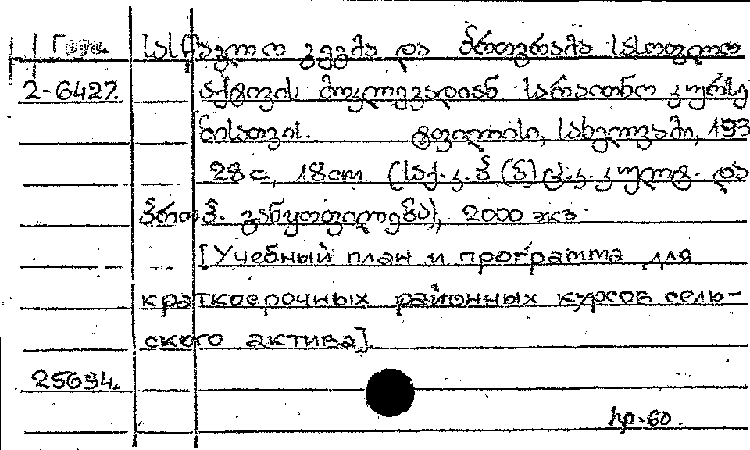 Груз. სასწავლო გეგმა და პროგრამა სასოფლო
2-6427. აქტივის მოკლევადიან სარაიონო კურსე
ბისათვის. ტფილისი, სახელგამი, 193
28с, 18cm (საქ.კ.პ(ბ)ც.კ. კულტ. და
პროპ. განყოფილება), 2000 экз.
[Учебный план и программа для
краткосрочных районных курсов сель-
ского актива].
25694.
հր-60.